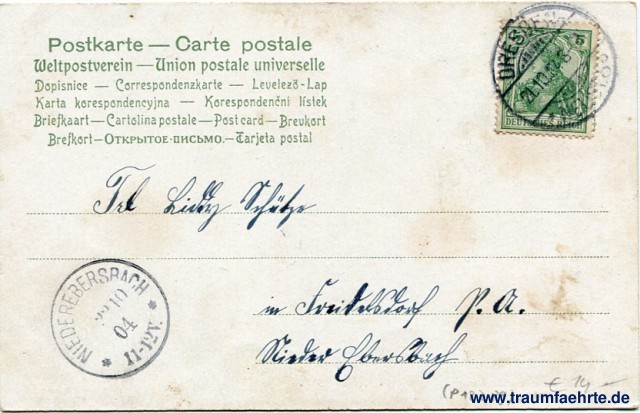 Postkarte — Carte postale
Weltpostverein — Union postale universelle
Dopisnice — Correspondenzkarte — Levelező-Lap
Karta korespondencyjna — Korespondenční lístek
Briefkaart — Cartolina postale — Post card — Brevkort
Brefkort — Открытое письмо. — Tarjeta postal
DRESDEN
5
DEUTSCHES REICH
Frl Liddy Schütze
NIEDEREBERSBACH
22 10
04
11-12V.
in Freidelsdorf P. A.
Nieder Ebersbach
€ 14 —
www.traumfaehrte.de